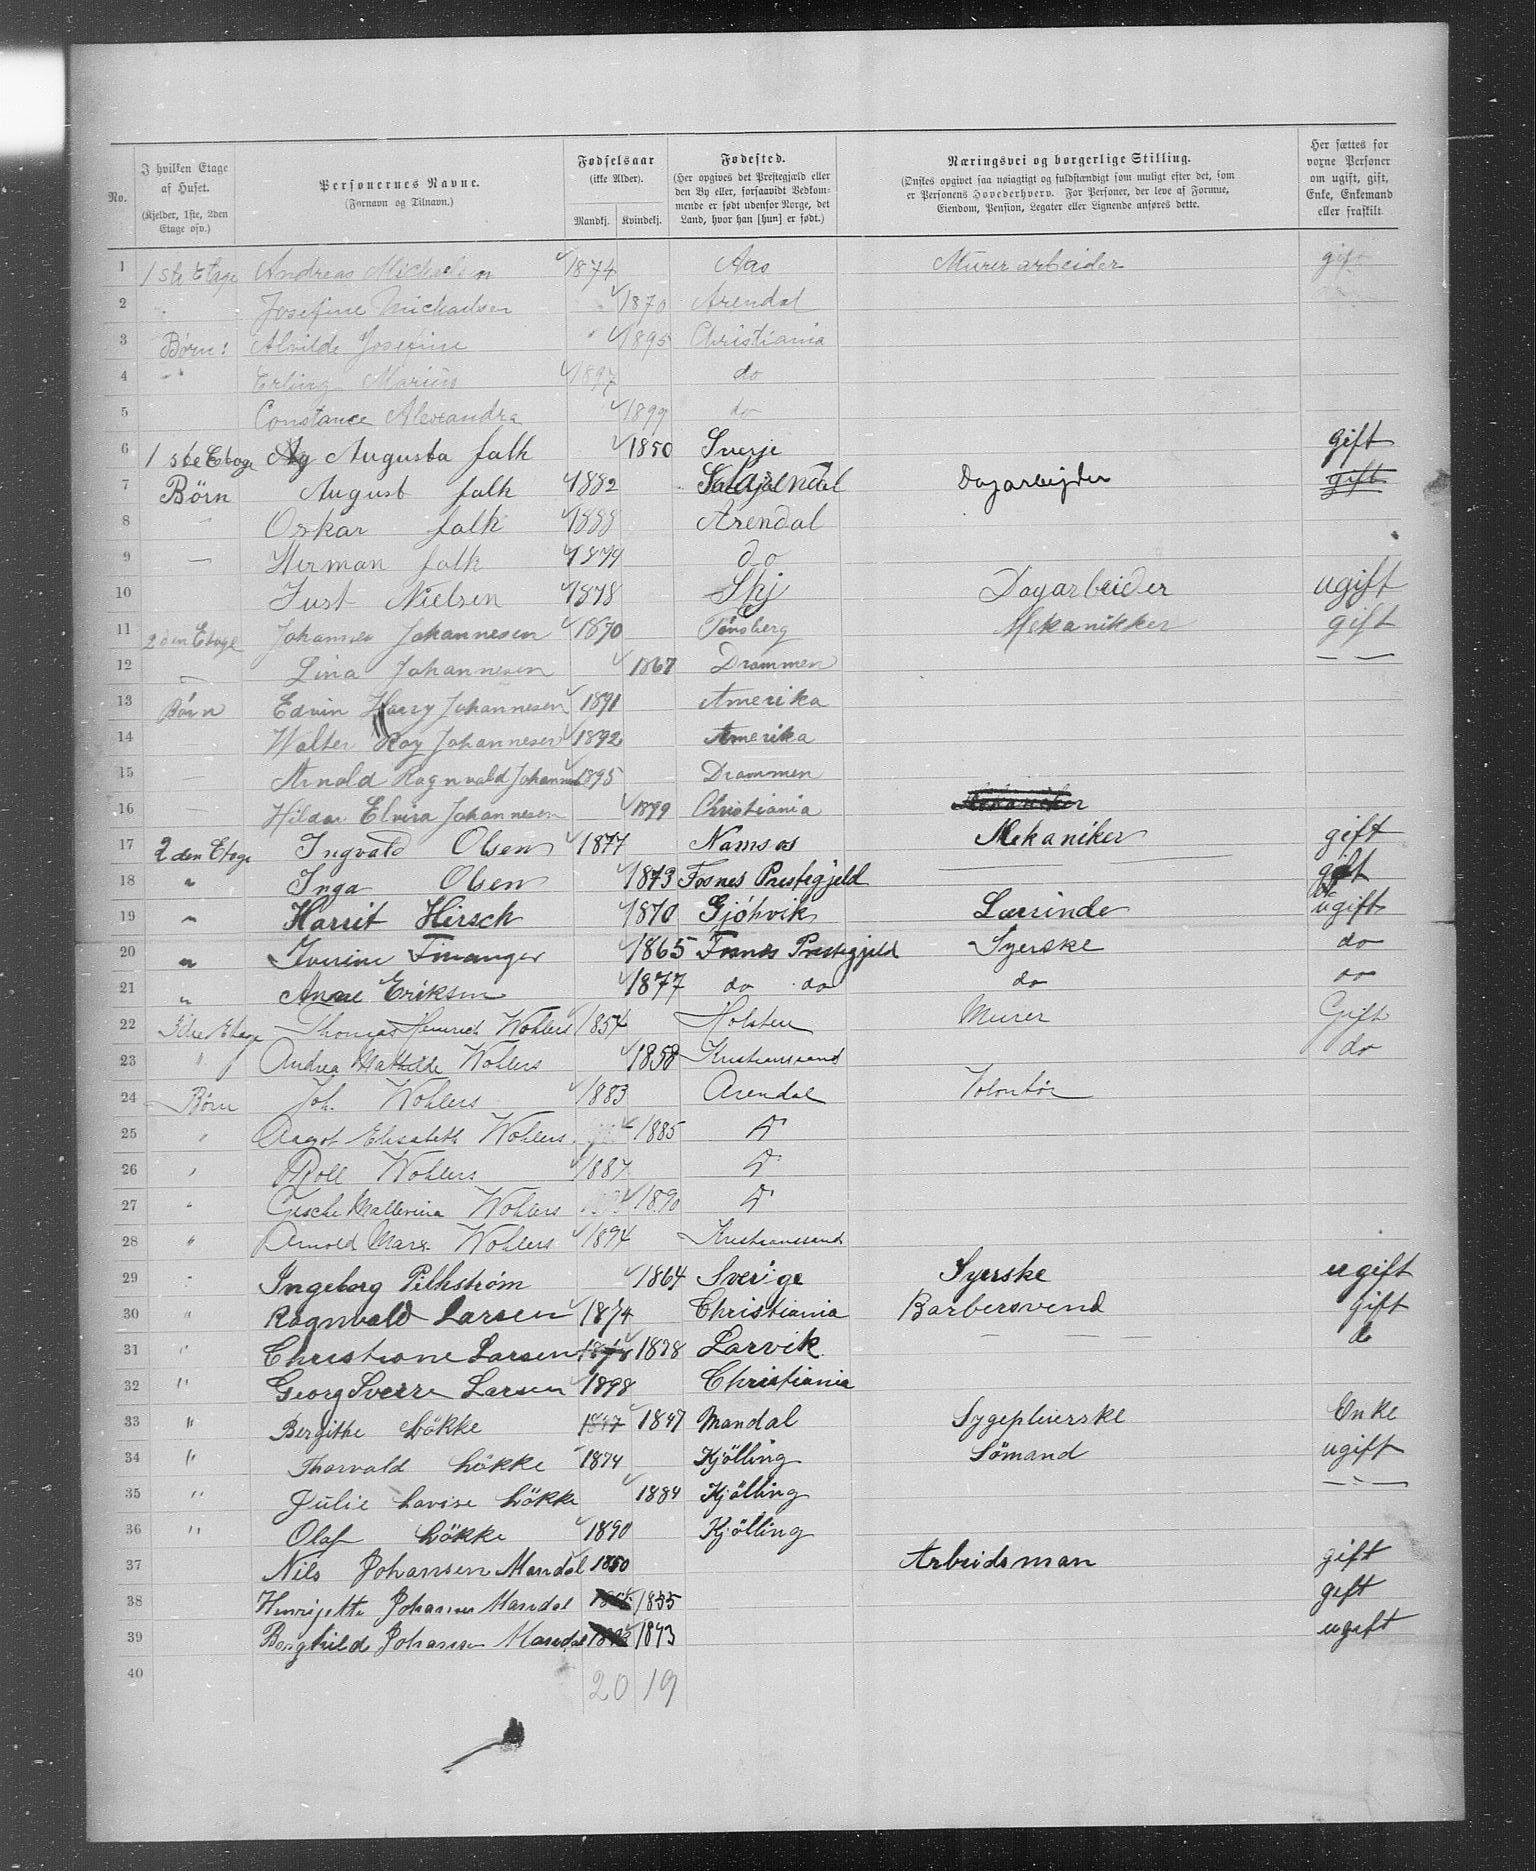 No. I hvilken Etage af Huset. (Kjelder, 1ste, 2den Etage osv.) Personernes Navne. (Fornavn og Tilnavn.) Fødselsaar (ikke Alder). Mandkj. Kvindekj. Fødested. (Her opgives det Prestegjæld eller den By eller, forsaavidt Vedkommende er født udenfor Norge, det Land, hvor han [hun] er født.) Næringsvei og borgerlige Stilling. (Ønskes opgivet saa nøiagtigt og fuldstændigt som muligt efter det, som er Personens Hovederhverv. For Personer, der leve af Formue, Eiendom, Pension, Legater eller Lignende anføres dette. Her sættes for vorne Personer om ugift, gift, Enke, Enkemand eller fraskilt
1 1ste Etage Andreas Michaelsen 1874 Aas Murer arbeider gift
2 Josefine Michaelsen 1870 Arendal
3 Børn: Alvilde Josefine 1895 Christiania
4 Erling Marius 1897 do
5 Constance Alexandra 1899 do
6 1 ste Etage Augusta falk 1850 Sverje gift
7 Børn August falk 1882 Arendal Dagarbejder gift
8 Oskar falk 1888 Arendal
9 — Herman falk 1879 do
10 Just Nielsen 1878 Skj Dagarbeider ugift
11 2 den Etage Johannes Johannesen 1870 Tønsberg Mekanikker gift
12 Lina Johannesen 1867 Drammen — —
13 Børn Edvin Harry Johannesen 1891 Amerika
14 Walter Roy Johannesen 1892 Amerika
15 — Arnold Ragnvald Johannes 1895 Drammen
16 — Hildar Elvira Johannesen 1899 Christiania
17 2 den Etage Ingvald Olsen 1877 Namsos Mekaniker gift
18 " Inga Olsen 1873 Fosnes Prestegjeld gift
19 " Harrit Hirsch 1870 Gjøhvik Lærinde ugift
20 " Iverine Finanger 1865 Fosnes Prestegjeld Syerske do
21 " Anne Eriksen 1877 do do do do
22 Thomas Heinrich Wohlers 1854 Holsten Murer Gift
23 " Andrea Mathilde Wohlers 1858 Kristianssand do
24 Børn Joh. Wohlers 1883 Arendal Volontør
25 " Aagot Elisabeth Wohlers 1885 do
26 " Rolf Wohlers 1887 do
27 " Wohlers 1890 do
28 " Arnold Marx Wohlers 1894 Kristianssand
29 " Ingeborg Pilhstrøm 1864 Sverige Syerske ugift
30 " Ragnvald Larsen 1874 Christiania Barbersvend gift
31 " Christiane Larsen 1878 Larvik — — — do
32 " Georg Sverre Larsen 1898 Christiania
33 " Bergithe Løkke 1847 1847 Mandal Sygepleierske Enke
34 " Thorvald Løkke 1874 Kjølling Sømand ugift
35 " Julie Lovise Løkke 1884 Kjølling — " —
36 " Olaf Løkke 1890 Kjølling
37 Nils Johansen Mandal 1850 Arbeidsman gift
38 Henrijette Johansen Mandal 1855 gift
39 Borghilde Johansen Mandal 1873 ugift
40 20 19